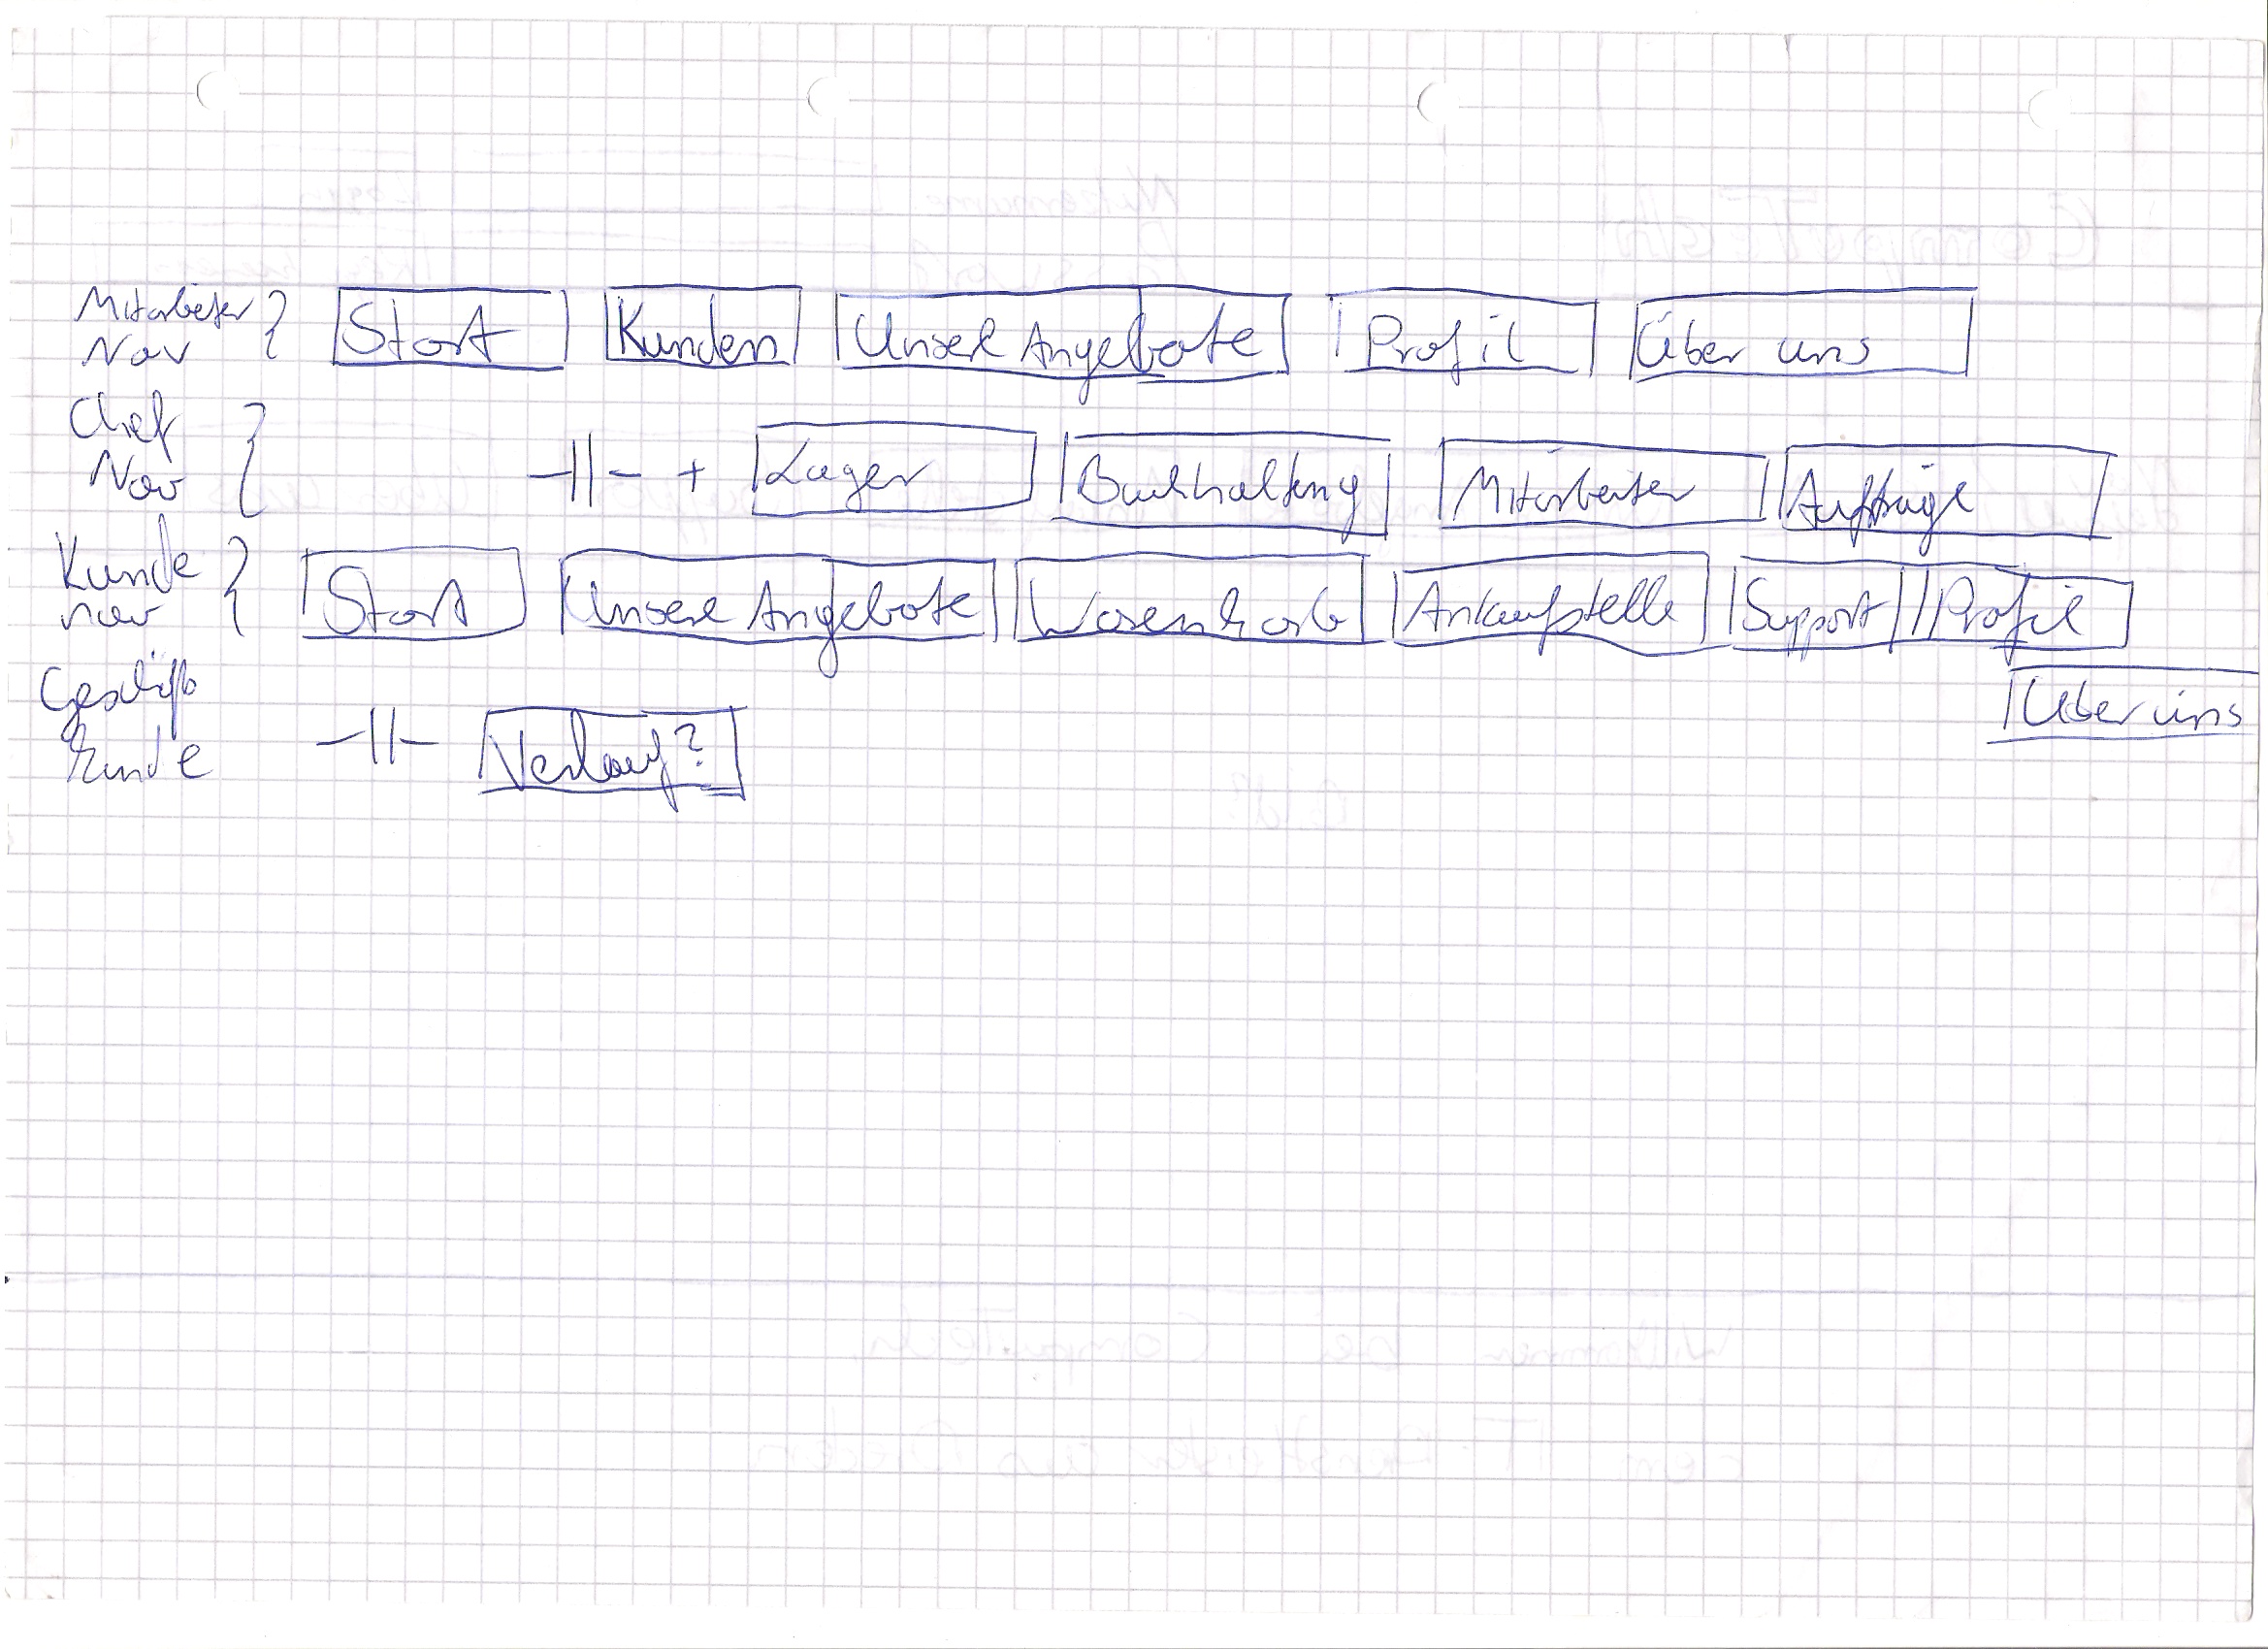 Mitarbeiter Nav } Start Kunden Unsere Angebote Profil Über uns
Chef Nav } -||- + Lager Buchhaltung Mitarbeiter Aufträge
Kunde nav } Start Unsere Angebote Warenkorb Ankaufstelle Support Profil
Über uns
Geschäfts kunde -||- Verlauf?